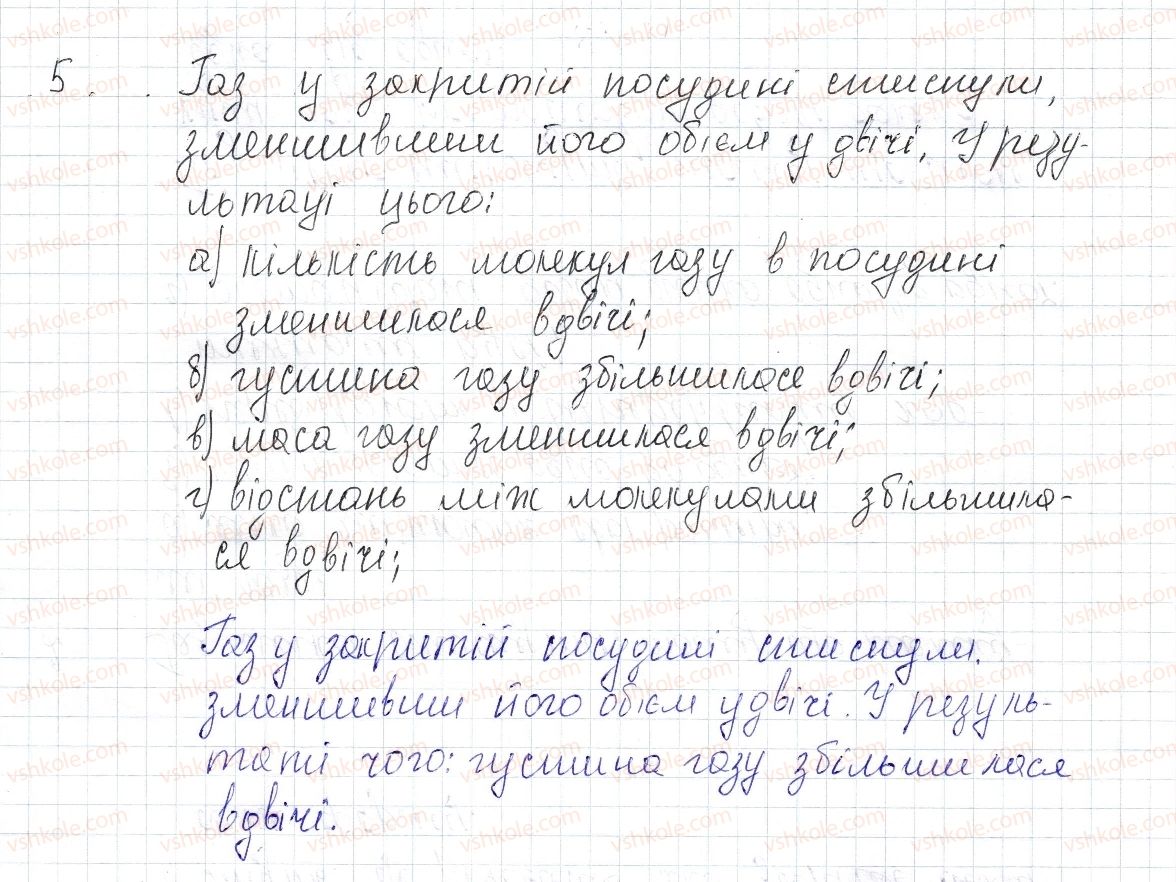 5. Газ у закритій посудині стиснули,
зменшивши його обієм у двічі. У резу-
льтаті цього:
а) кількість молекул газу в посудині
зменшилася вдвічі;
б) густина газу збільшилася вдвічі;
в) маса газу зменшилася вдвічі;
г) відстань між молекулами збільшила-
ся вдвічі;
Газ у закритій посудині стиснули.
зменшивши його обієм удвічі. У резуль-
таті чого: густина газу збільшилася
вдвічі.